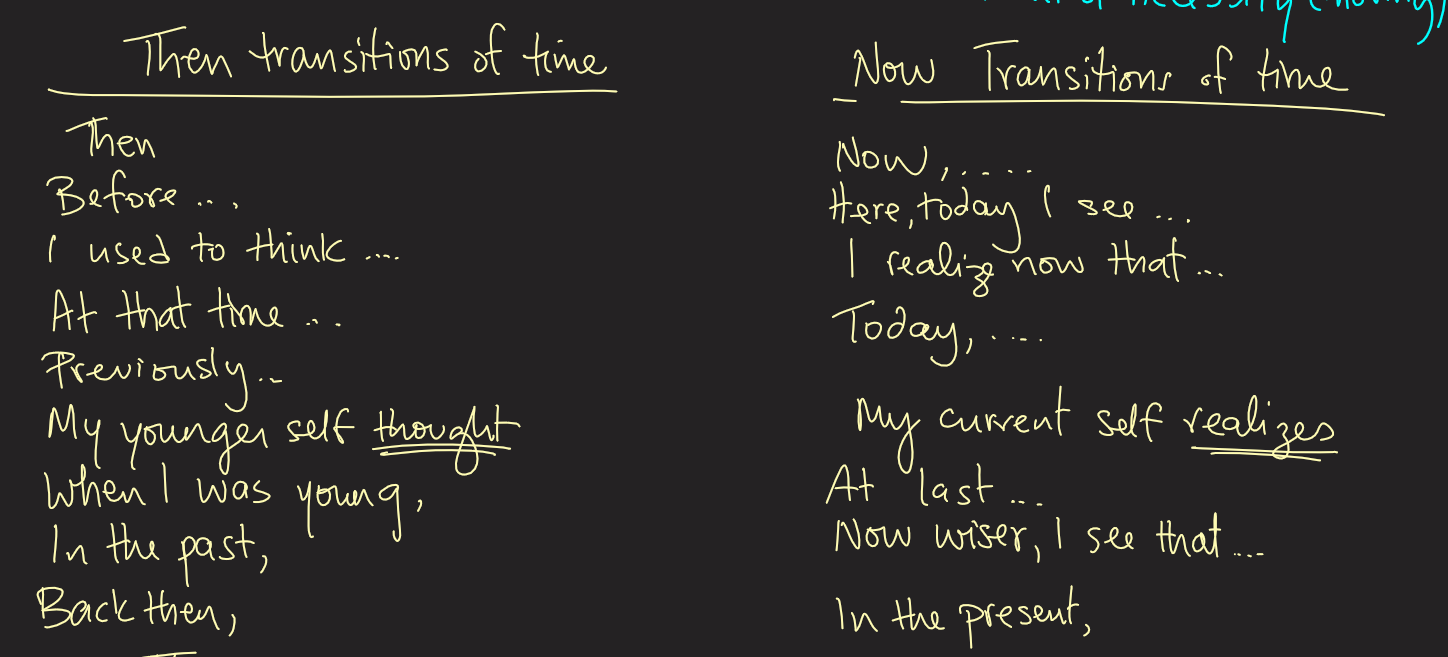 necessity (having)
Then transitions of time
Then
Before ...
I used to think ....
At that time ...
Previously...
My younger self thought
When I was young,
In the past,
Back then,
Now Transitions of time
Now, .....
Here, today I see ...
I realize now that...
Today, .....
My current self realizes
At last ...
Now wiser, I see that ....
In the present,